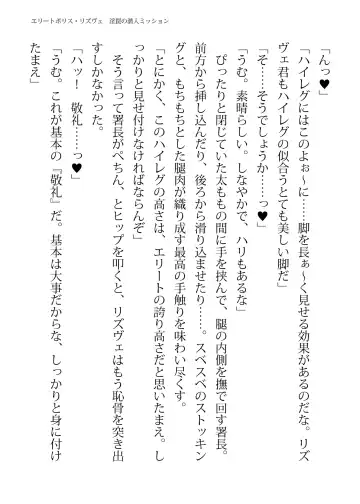 エリートポリス・リズヴェ　淫罰の潜入ミッション
「んっ♥」
「ハイレグにはこのよぉ〜に……脚を長ぁ〜く見せる効果があるのだな。リズ
ヴェ君もハイレグの似合うとても美しい脚だ」
「そ……そうでしょうか……っ♥」
「うむ。素晴らしい。しなやかで、ハリもあるな」
　ぴったりと閉じていた太ももの間に手を挟んで、腿の内側を撫で回す署長。
前方から挿し込んだり、後ろから滑り込ませたり……。スベスベのストッキン
グと、もちもちとした腿肉が織り成す最高の手触りを味わい尽くす。
「とにかく、このハイレグの高さは、エリートの誇り高さだと思いたまえ。し
っかりと見せ付けなければならんぞ」
　そう言って署長がぺちん、とヒップを叩くと、リズヴェはもう恥骨を突き出
すしかなかった。
「ハッ！　敬礼……っ♥」
「うむ。これが基本の『敬礼』だ。基本は大事だからな、しっかりと身に付け
たまえ」